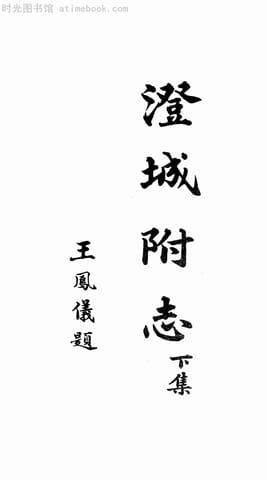 时光图书馆 atimebook.com
澄城附志
下集
王鳳儀題